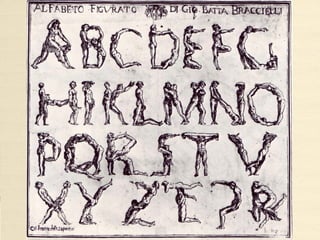 ALFABETO FIGURATO DI GIO. BATTA BRACCIELLI
A B C D E F G
H I K L M N O
P Q R S T V
X Y Z